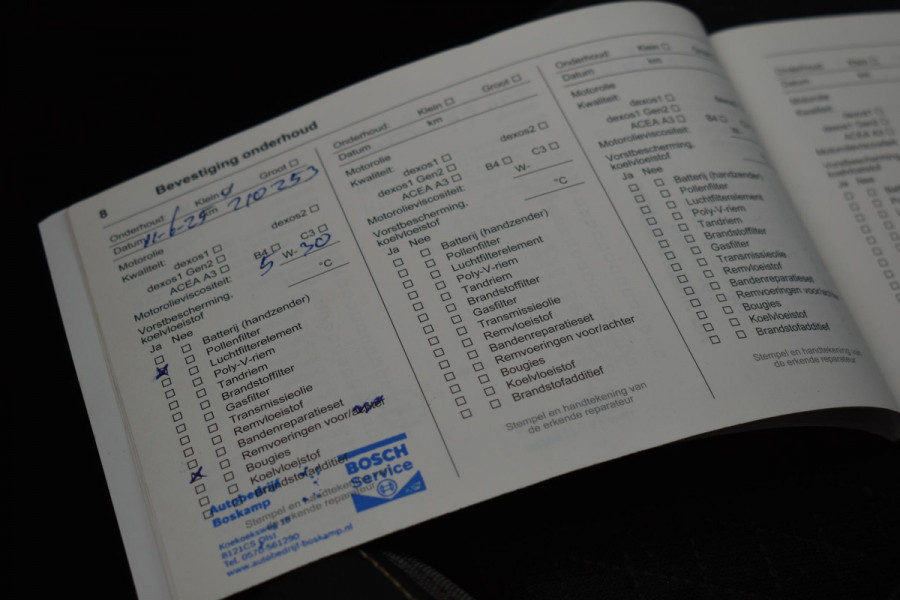 8
Bevestiging onderhoud
Onderhoud: Klein ☐ Groot ☐
Datum km 210253
Motorolie
Kwaliteit: dexos1 ☐ dexos2 ☐
dexos1 Gen2 ☐
ACEA A3 ☐ B4 ☐ C3 ☐
Motorolieviscositeit: 5 W- 30
Vorstbescherming,
koelvloeistof °C
Ja Nee
Batterij (handzender)
Pollenfilter
Luchtfilterelement
Poly-V-riem
Tandriem
Brandstoffilter
Gasfilter
Transmissieolie
Remvloeistof
Bandenreparatieset
Remvoeringen voor/achter
Bougies
Koelvloeistof
Brandstofadditief
Stempel en handtekening van
de erkende reparateur
Autobedrijf
Boskamp
8121CS Olst
Tel. 0570-561290
www.autobedrijf-boskamp.nl
BOSCH
Service
Onderhoud: Klein ☐ Groot ☐
Datum km
Motorolie
Kwaliteit: dexos1 ☐ dexos2 ☐
dexos1 Gen2 ☐
ACEA A3 ☐ B4 ☐ C3 ☐
Motorolieviscositeit: W-
Vorstbescherming,
koelvloeistof °C
Ja Nee
Batterij (handzender)
Pollenfilter
Luchtfilterelement
Poly-V-riem
Tandriem
Brandstoffilter
Gasfilter
Transmissieolie
Remvloeistof
Bandenreparatieset
Remvoeringen voor/achter
Bougies
Koelvloeistof
Brandstofadditief
Stempel en handtekening van
de erkende reparateur
Onderhoud: Klein ☐
Datum km
Motorolie
Kwaliteit: dexos1 ☐
dexos1 Gen2 ☐
ACEA A3 ☐ B4 ☐
Motorolieviscositeit: W-
Vorstbescherming,
koelvloeistof
Ja Nee
Batterij (handzender)
Pollenfilter
Luchtfilterelement
Poly-V-riem
Tandriem
Brandstoffilter
Gasfilter
Transmissieolie
Remvloeistof
Bandenreparatieset
Remvoeringen voor/achter
Bougies
Koelvloeistof
Brandstofadditief
Stempel en handtekening van
de erkende reparateur